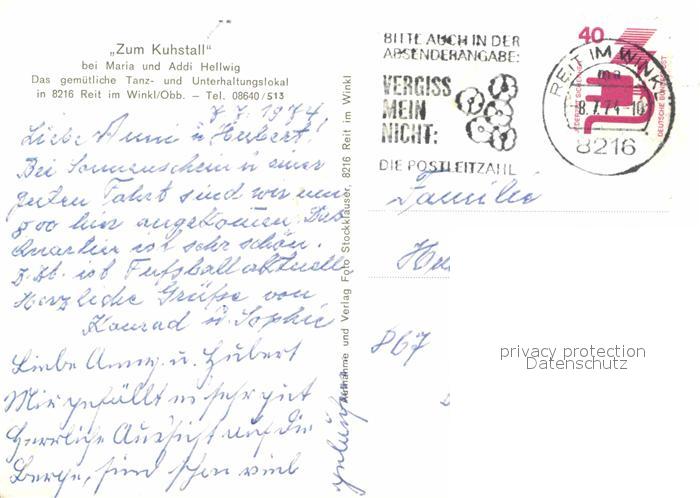 „Zum Kuhstall"
bei Maria und Addi Hellwig
Das gemütliche Tanz- und Unterhaltungslokal
in 8216 Reit im Winkl/Obb. – Tel. 08640/513
7.7.1974
Liebe Anni u Hubert!
Bei Sonnenschein u einer
guten Fahrt sind wir um
hier angekommen. Das
Quartier ist sehr schön.
Z. Zt. ist Fußball aktuell
Herzliche Grüße von
Konrad u. Sophie
Liebe Anny u. Hubert
Mir gefällt es sehr gut
Herrliche Aussicht auf die
Berge, sind schon viel
gelaufen
Aufnahme und Verlag Foto Stocklauser, 8216 Reit im Winkl
BITTE AUCH IN DER
ABSENDERANGABE:
VERGISS
MEIN
NICHT:
DIE POSTLEITZAHL
40
DEUTSCHE BUNDESPOST
REIT IM WINKL
-8.7.74-10
8216
Familie
867
privacy protection
Datenschutz